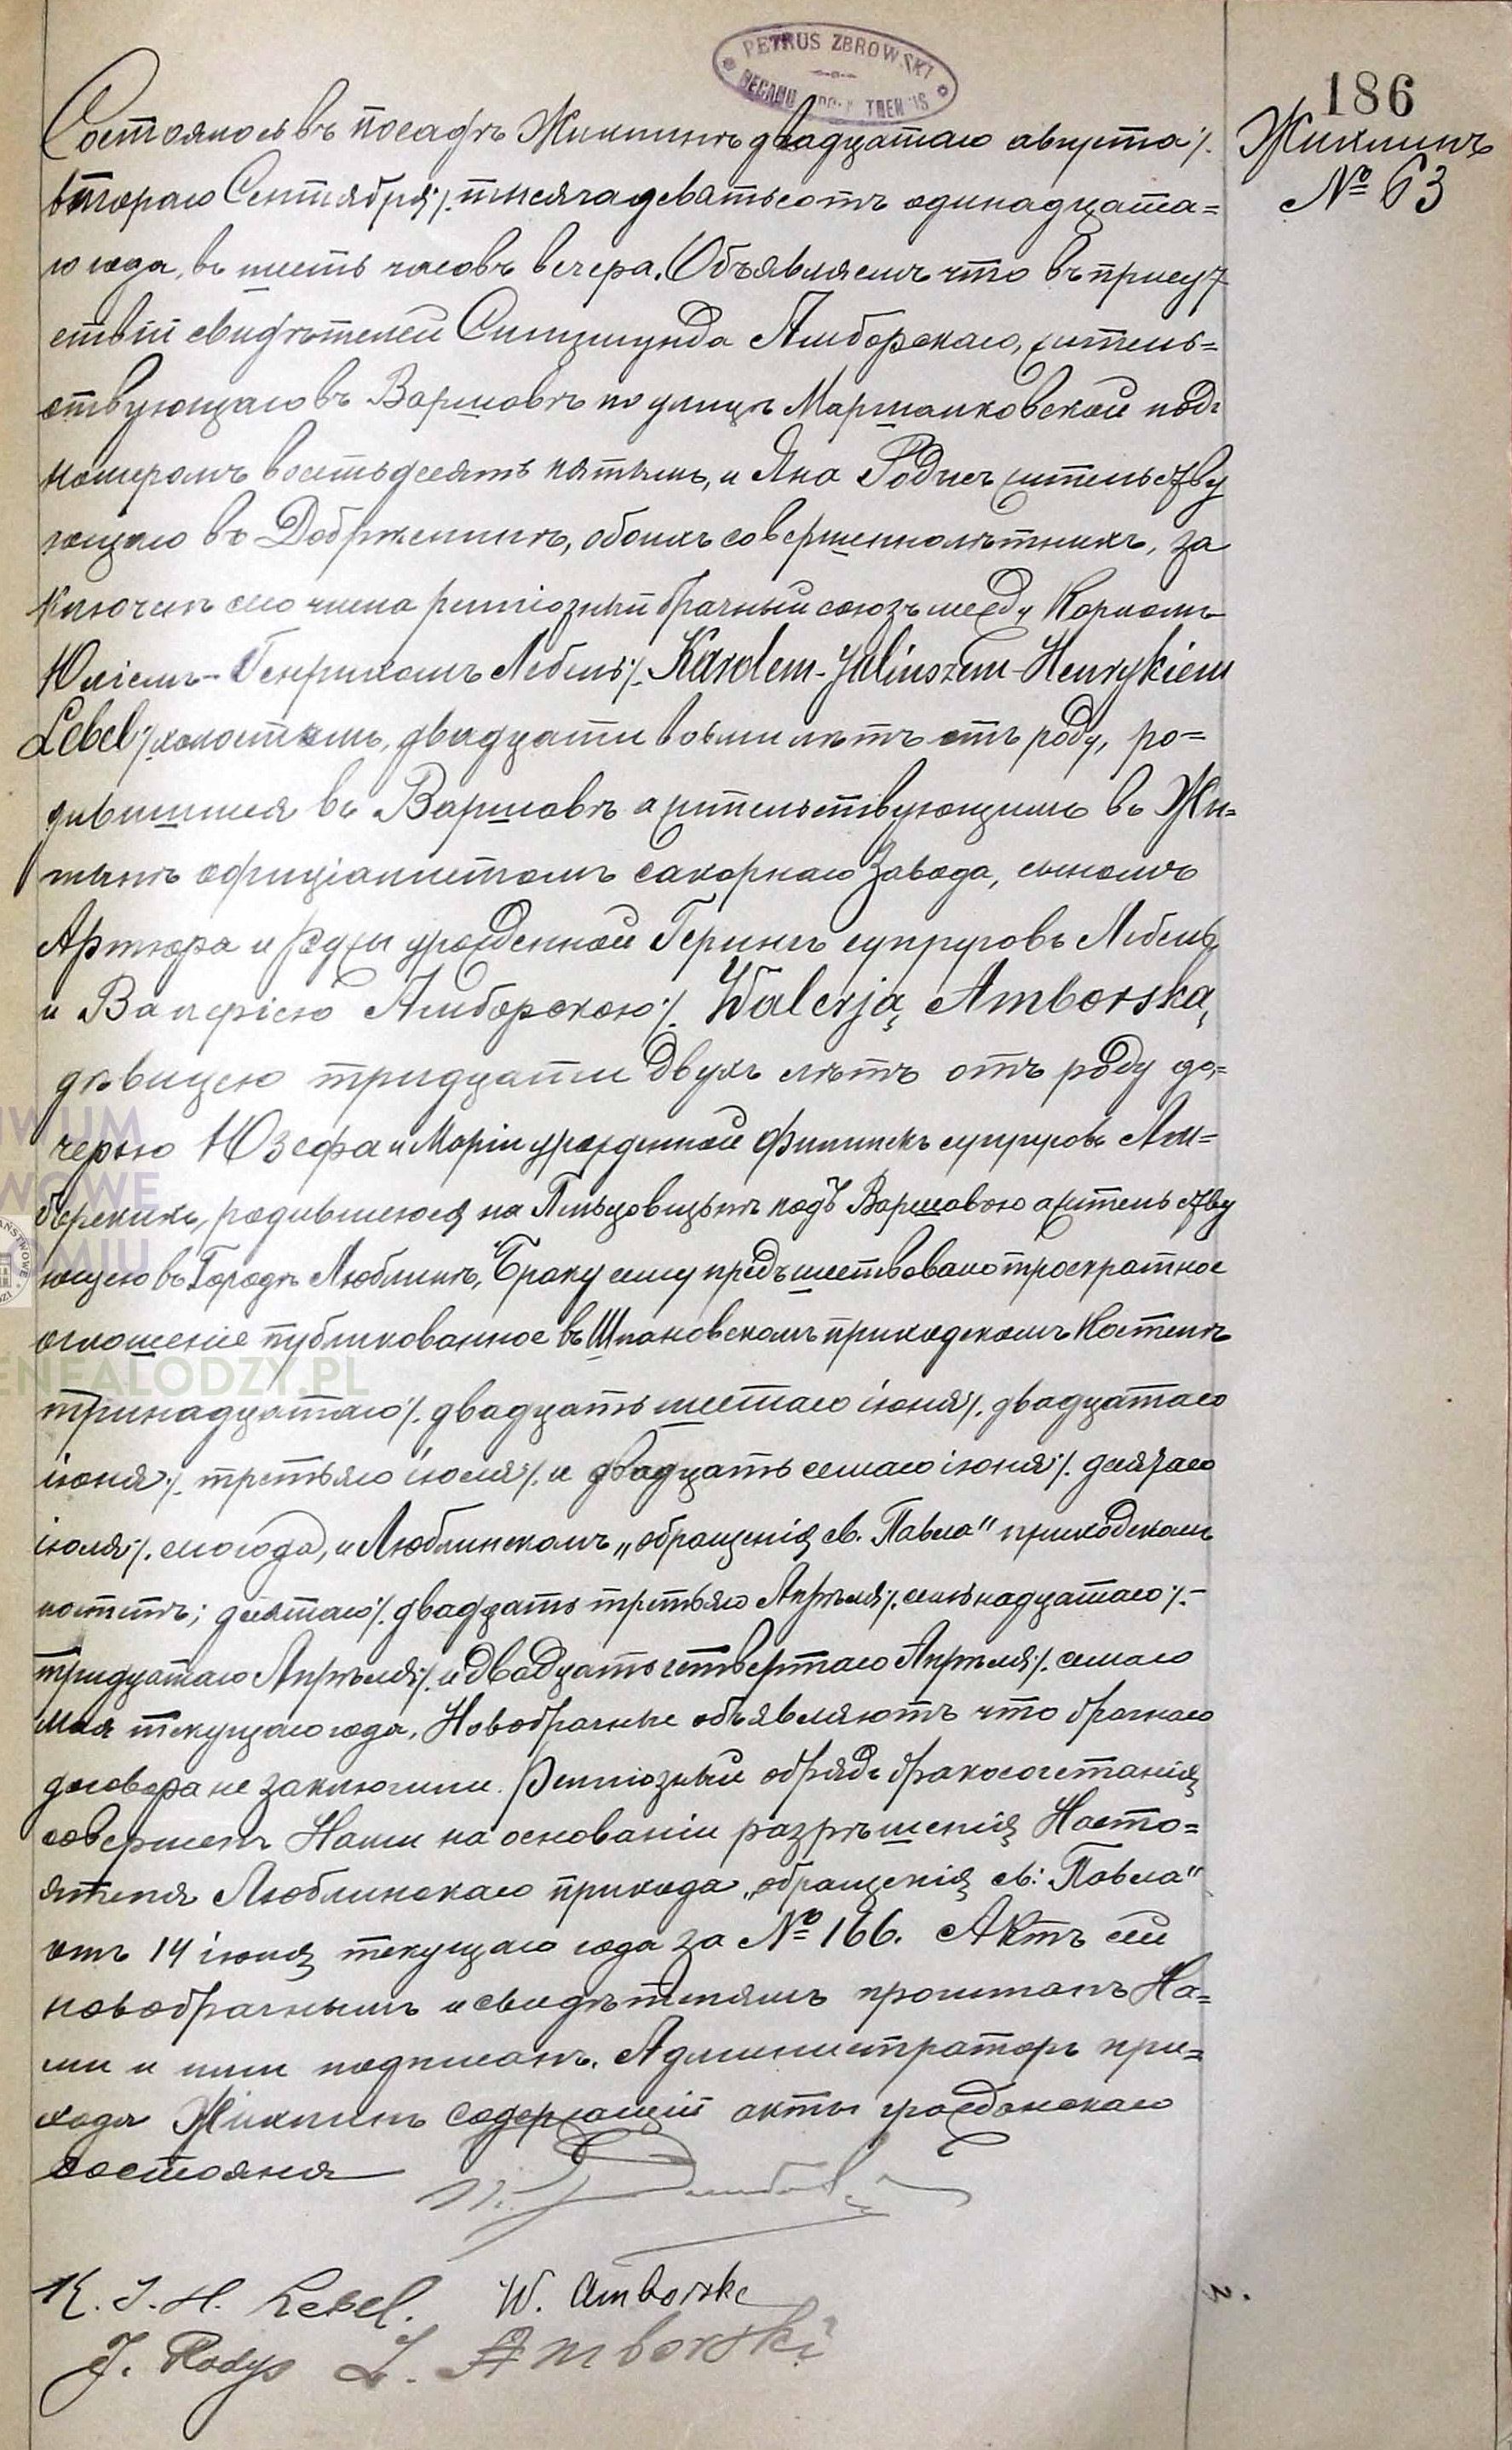 PETRUS ZBROWSKI
186
Жихлинъ
№ 63
Состоялось въ посадѣ Жихлинѣ двадцатаго августа ⁒
втораго Сентября ⁒ тысяча девятьсотъ одинадцата=
го года, въ шесть часовъ вечера. Объявляемъ что въ присут
ствіи свидѣтелей Сигизмунда Амборскаго, житель=
ствующаго въ Варшавѣ по улицѣ Маршалковской подъ
номеромъ восемьдесятъ пятымъ, и Яна Родысъ жительству
ющаго въ Добржелинѣ, обоихъ совершеннолѣтнихъ, за
ключенъ сего числа религіозный брачный союзъ между Каролемъ
Юліемъ-Генрихомъ Лебель ⁒ Karolem-Juliuszem-Henrykiem
Lebel ⁒ холостымъ, двадцати восьми лѣтъ отъ роду, ро=
дившимся въ Варшавѣ а жительствующимъ въ Жи=
тынѣ официалистомъ сахарнаго завода, сыномъ
Артура и урожденной Герингъ супруговъ Лебель
и Валеріею Амборскою ⁒ Walerją Amborską,
дѣвицею тридцати двухъ лѣтъ отъ роду до=
черью Юзефа и Маріи урожденной Филипекъ супруговъ Ам=
борскихъ, родившеюся на подъ Варшавою а жительству
ющею въ Городѣ Люблинѣ. Браку сему предъшествовало троекратное
оглошеніе публикованное въ Шпановскомъ приходскомъ Костелѣ
тринадцатаго ⁒ двадцать шестаго іюня ⁒ двадцатаго
іюня ⁒ третьяго іюля ⁒ и двадцать семаго іюня ⁒ десятаго
іюля ⁒ сего года, и Люблинскомъ „обращенія св. Павла" приходскомъ
костелѣ; десятаго ⁒ двадцать третьяго Апрѣля ⁒ семьнадцатаго ⁒ -
тридцатаго Апрѣля ⁒ и двадцать четвертаго Апрѣля ⁒ семаго
мая текущаго года. Новобрачные объявляютъ что брачнаго
договора не заключили. Религіозный обрядъ бракосочетанія
совершенъ Нами на основаніи разрѣшенія Насто=
ятеля Люблинскаго прихода „обращенія св: Павла"
отъ 14 іюня текущаго года за № 166. Актъ сей
новобрачнымъ и свидѣтелямъ прочитанъ На=
ми и ими подписанъ. Администраторъ при=
хода Жихлинъ содержащій акты гражданскаго
состоянія
K. J. H. Lebel. W. Amborska
J. Rodys Z. Amborski